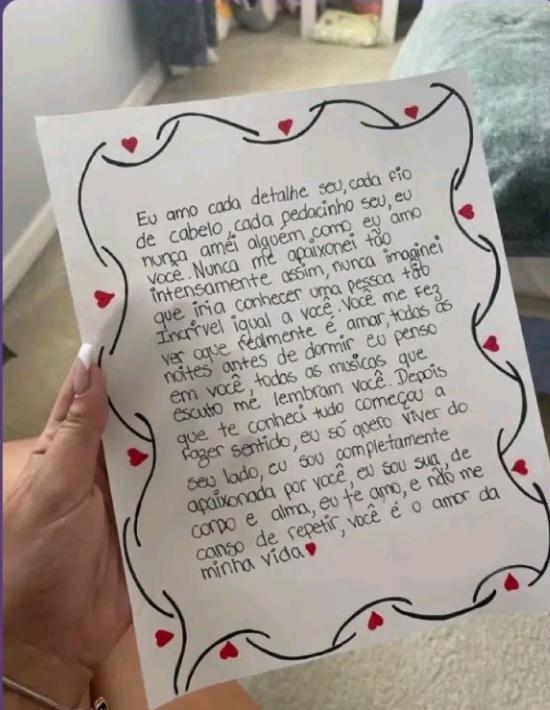 Eu amo cada detalhe seu, cada fio
de cabelo, cada pedacinho seu, eu
nunca amei alguém como eu amo
você. Nunca me apaixonei tão
intensamente assim, nunca imaginei
que iria conhecer uma pessoa tão
Incrível igual a você. Você me fez
ver oque realmente é amar, todas as
noites antes de dormir eu penso
em você, todas as musicas que
escuto me lembram você. Depois
que te conheci tudo começou a
fazer sentido, eu só quero viver do
seu lado, eu sou completamente
apaixonada por você, eu sou sua, de
corpo e alma, eu te amo, e não me
canso de repetir, você é o amor da
minha vida♥